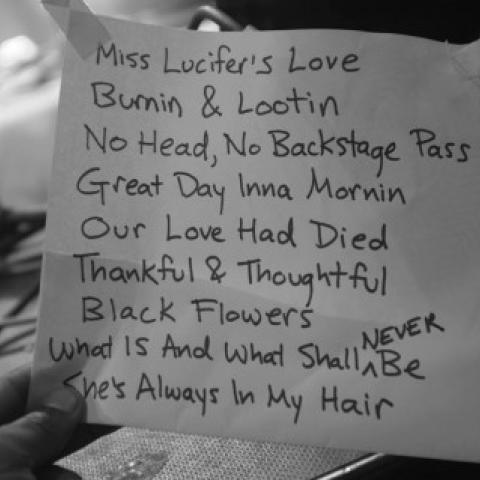 Miss Lucifer's Love
Burnin & Lootin
No Head, No Backstage Pass
Great Day Inna Mornin
Our Love Had Died
Thankful & Thoughtful
Black Flowers
What IS And What Shall NEVER Be
She's Always In My Hair